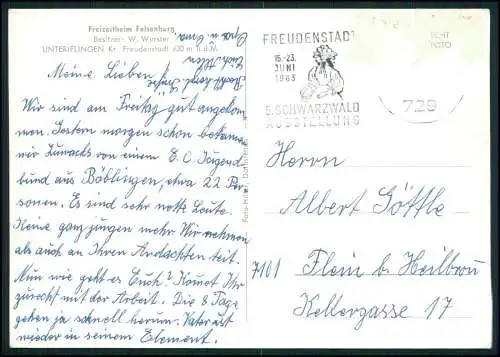 Freizeitheim Felsenburg
Besitzer: W. Wurster
UNTERIFLINGEN Kr. Freudenstadt 630 m ü.d.M.
Meine Lieben!
Wir sind am Freitag gut angekom
men. Gestern morgen schon bekamen
wir Zuwachs von einem E. C. Jugend
bund aus Böblingen, etwa 22 Per
sonen. Es sind sehr nette Leute.
Keine ganz jungen mehr. Wir nehmen
als auch an Ihren Andachten teil.
Nun wie geht es Euch? Kommt Ihr
zurecht mit der Arbeit. Die 8 Tage
gehen ja schnell herum. Vater ist
wieder in seinem Element.
Recht herzl. Grüße
Euch Allen
Opa u. Oma
FREUDENSTADT
15.-23.
JUNI
1963
5. SCHWARZWALD
AUSSTELLUNG
ECHT
FOTO
729
Herrn
Albert Göttle
7101 Flein b. Heilbronn
Kellergasse 17